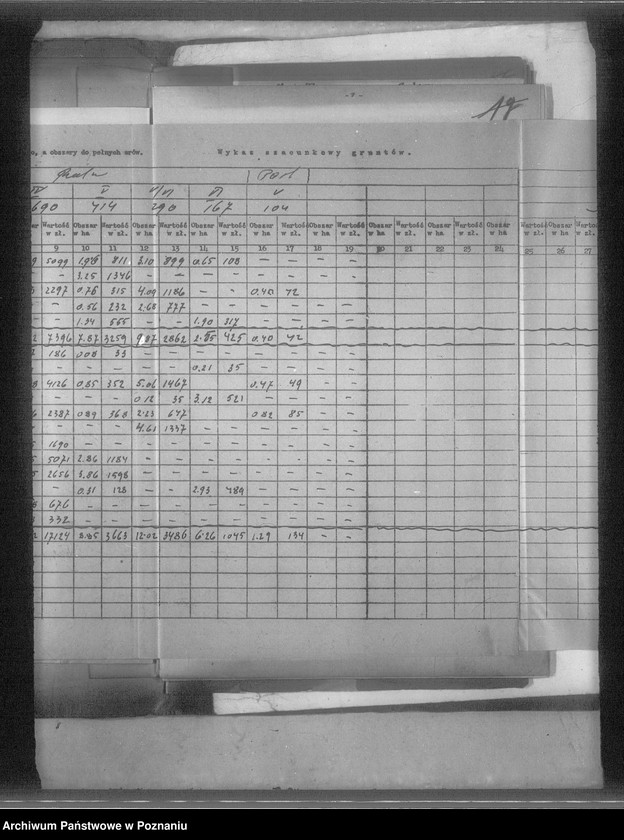 - 7 -
o, a obszary do pełnych arów. Wykaz szacunkowy gruntów.
IV V V/VI VI V
690 414 290 167 104
Wartość w zł. Obszar w ha Wartość w zł. Obszar w ha Wartość w zł. Obszar w ha Wartość w zł. Obszar w ha Wartość w zł. Obszar w ha Wartość w zł. Obszar w ha Wartość w zł. Obszar w ha Wartość w zł. Obszar w ha Wartość w zł. Obszar w ha Wartość w zł. Obszar w ha Wartość w zł.
9 10 11 12 13 14 15 16 17 18 19 20 21 22 23 24 25 26 27
5099 811 3.10 899 0.65 108 — — — —
— 3.25 1346 — — — — — — — —
2297 0.76 315 4.09 1186 — — 0.40 42 — —
— 0.56 232 2.68 777 — — — — — —
— 1.34 555 — — 1.90 317 — — — —
7396 7.87 3259 9.87 2862 2.55 425 0.40 42 — —
186 0.08 33 — — — — — — — —
— — — — — 0.21 35 — — — —
4126 0.85 352 5.06 1467 — — 0.47 49 — —
— — — 0.12 35 3.12 521 — — — —
2387 0.89 368 2.23 647 — — 0.82 85 — —
— — — 4.61 1337 — — — — — —
1690 — — — — — — — — — —
5071 2.86 1184 — — — — — — — —
2656 3.86 1598 — — — — — — — —
— 0.31 128 — — 2.93 489 — — — —
676 — — — — — — — — — —
332 — — — — — — — — — —
17124 8.85 3663 12.02 3486 6.26 1045 1.29 134 — —
Archiwum Państwowe w Poznaniu